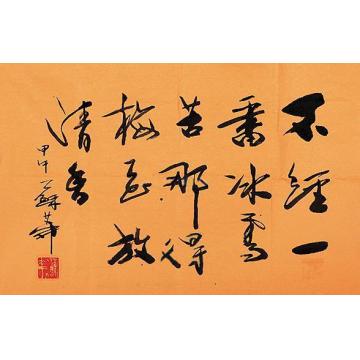 不經一
番冰雪
苦那得
梅花放
清香
甲午